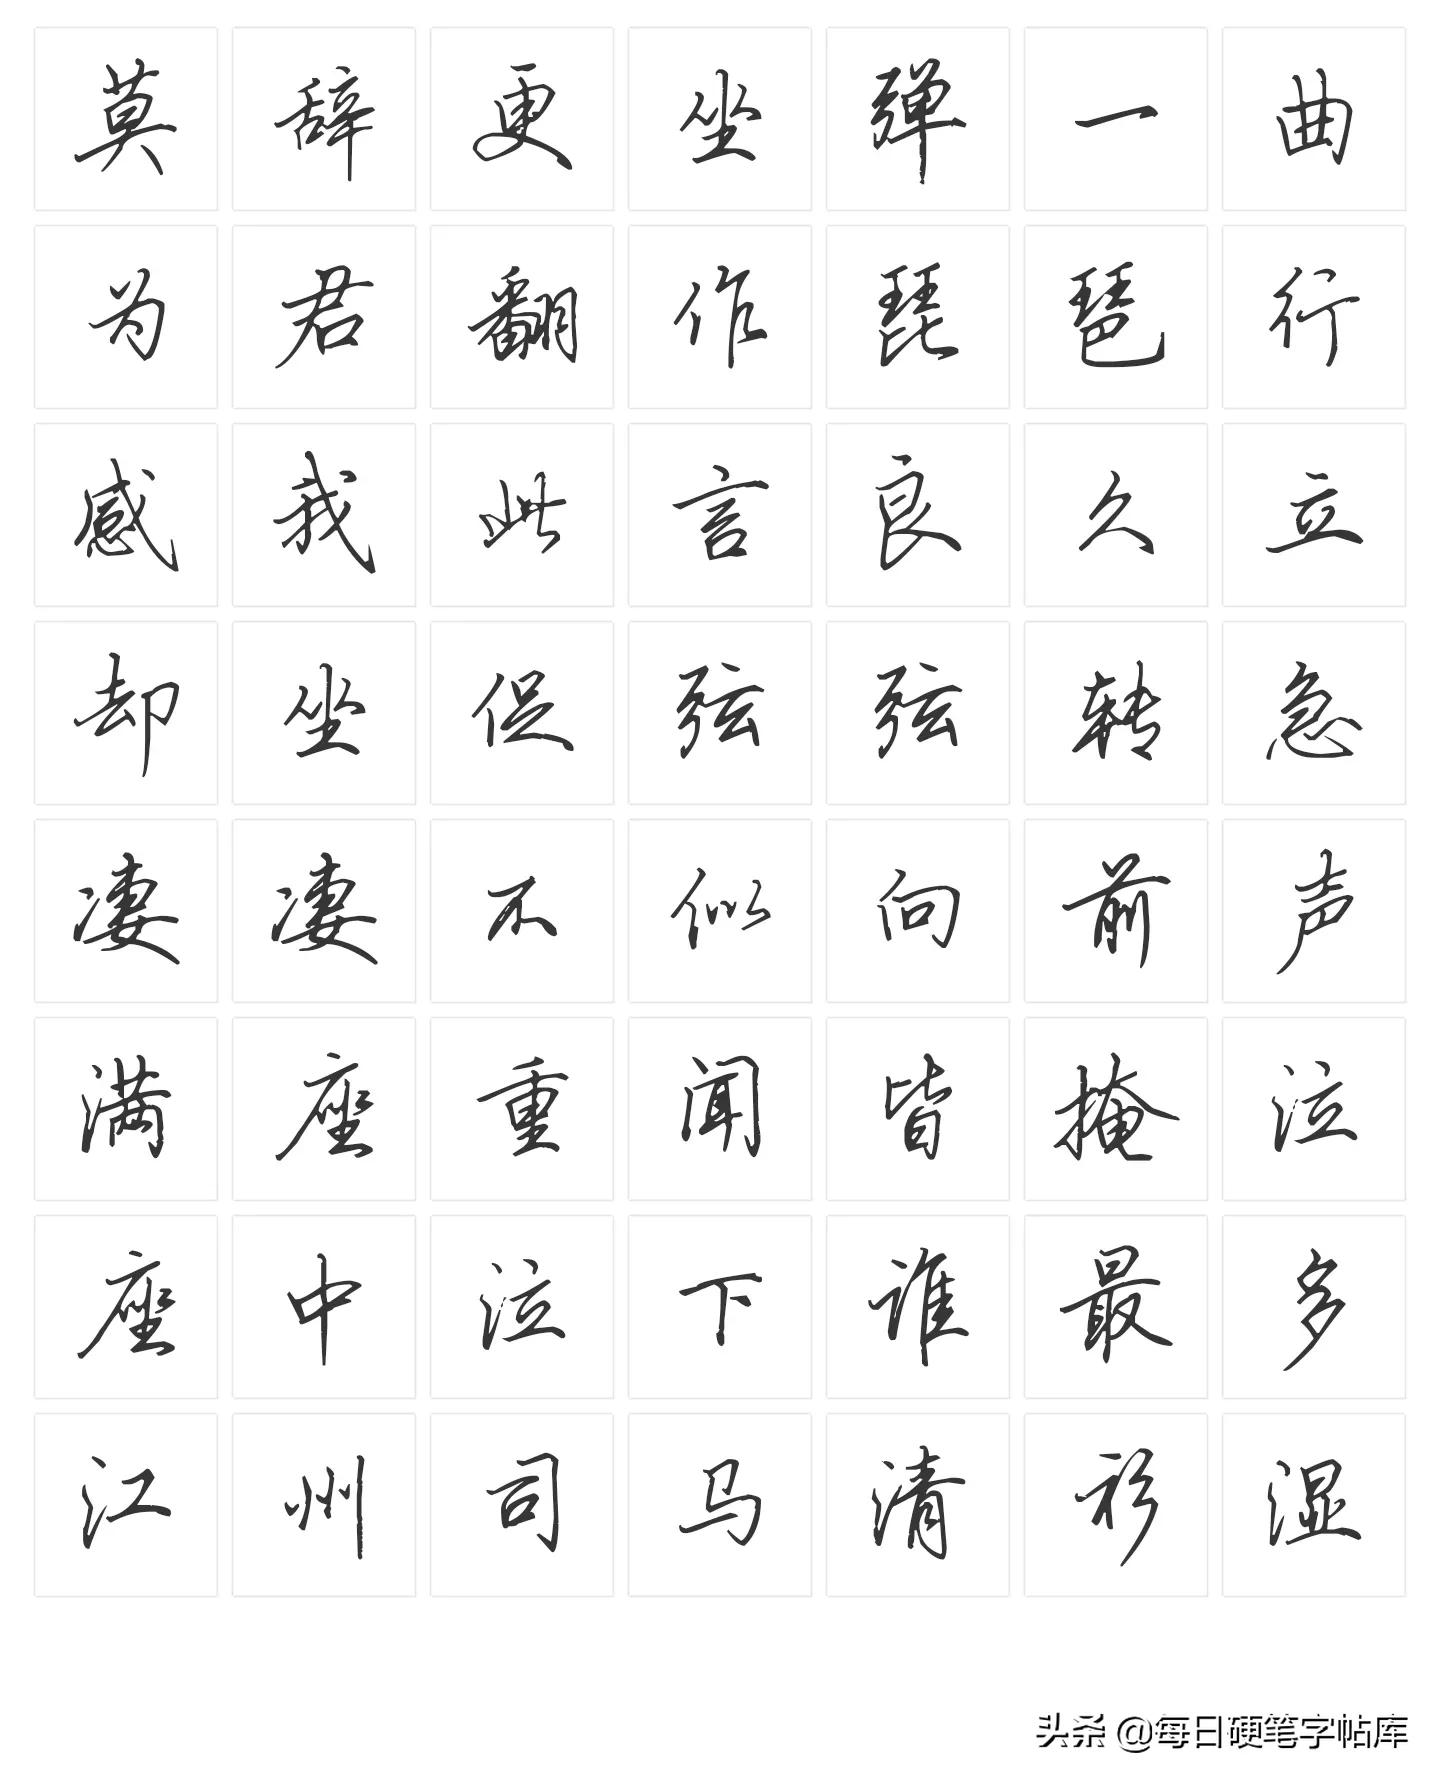 莫辞更坐弹一曲
为君翻作琵琶行
感我此言良久立
却坐促弦弦转急
凄凄不似向前声
满座重闻皆掩泣
座中泣下谁最多
江州司马清衫湿
头条 @每日硬笔字帖库